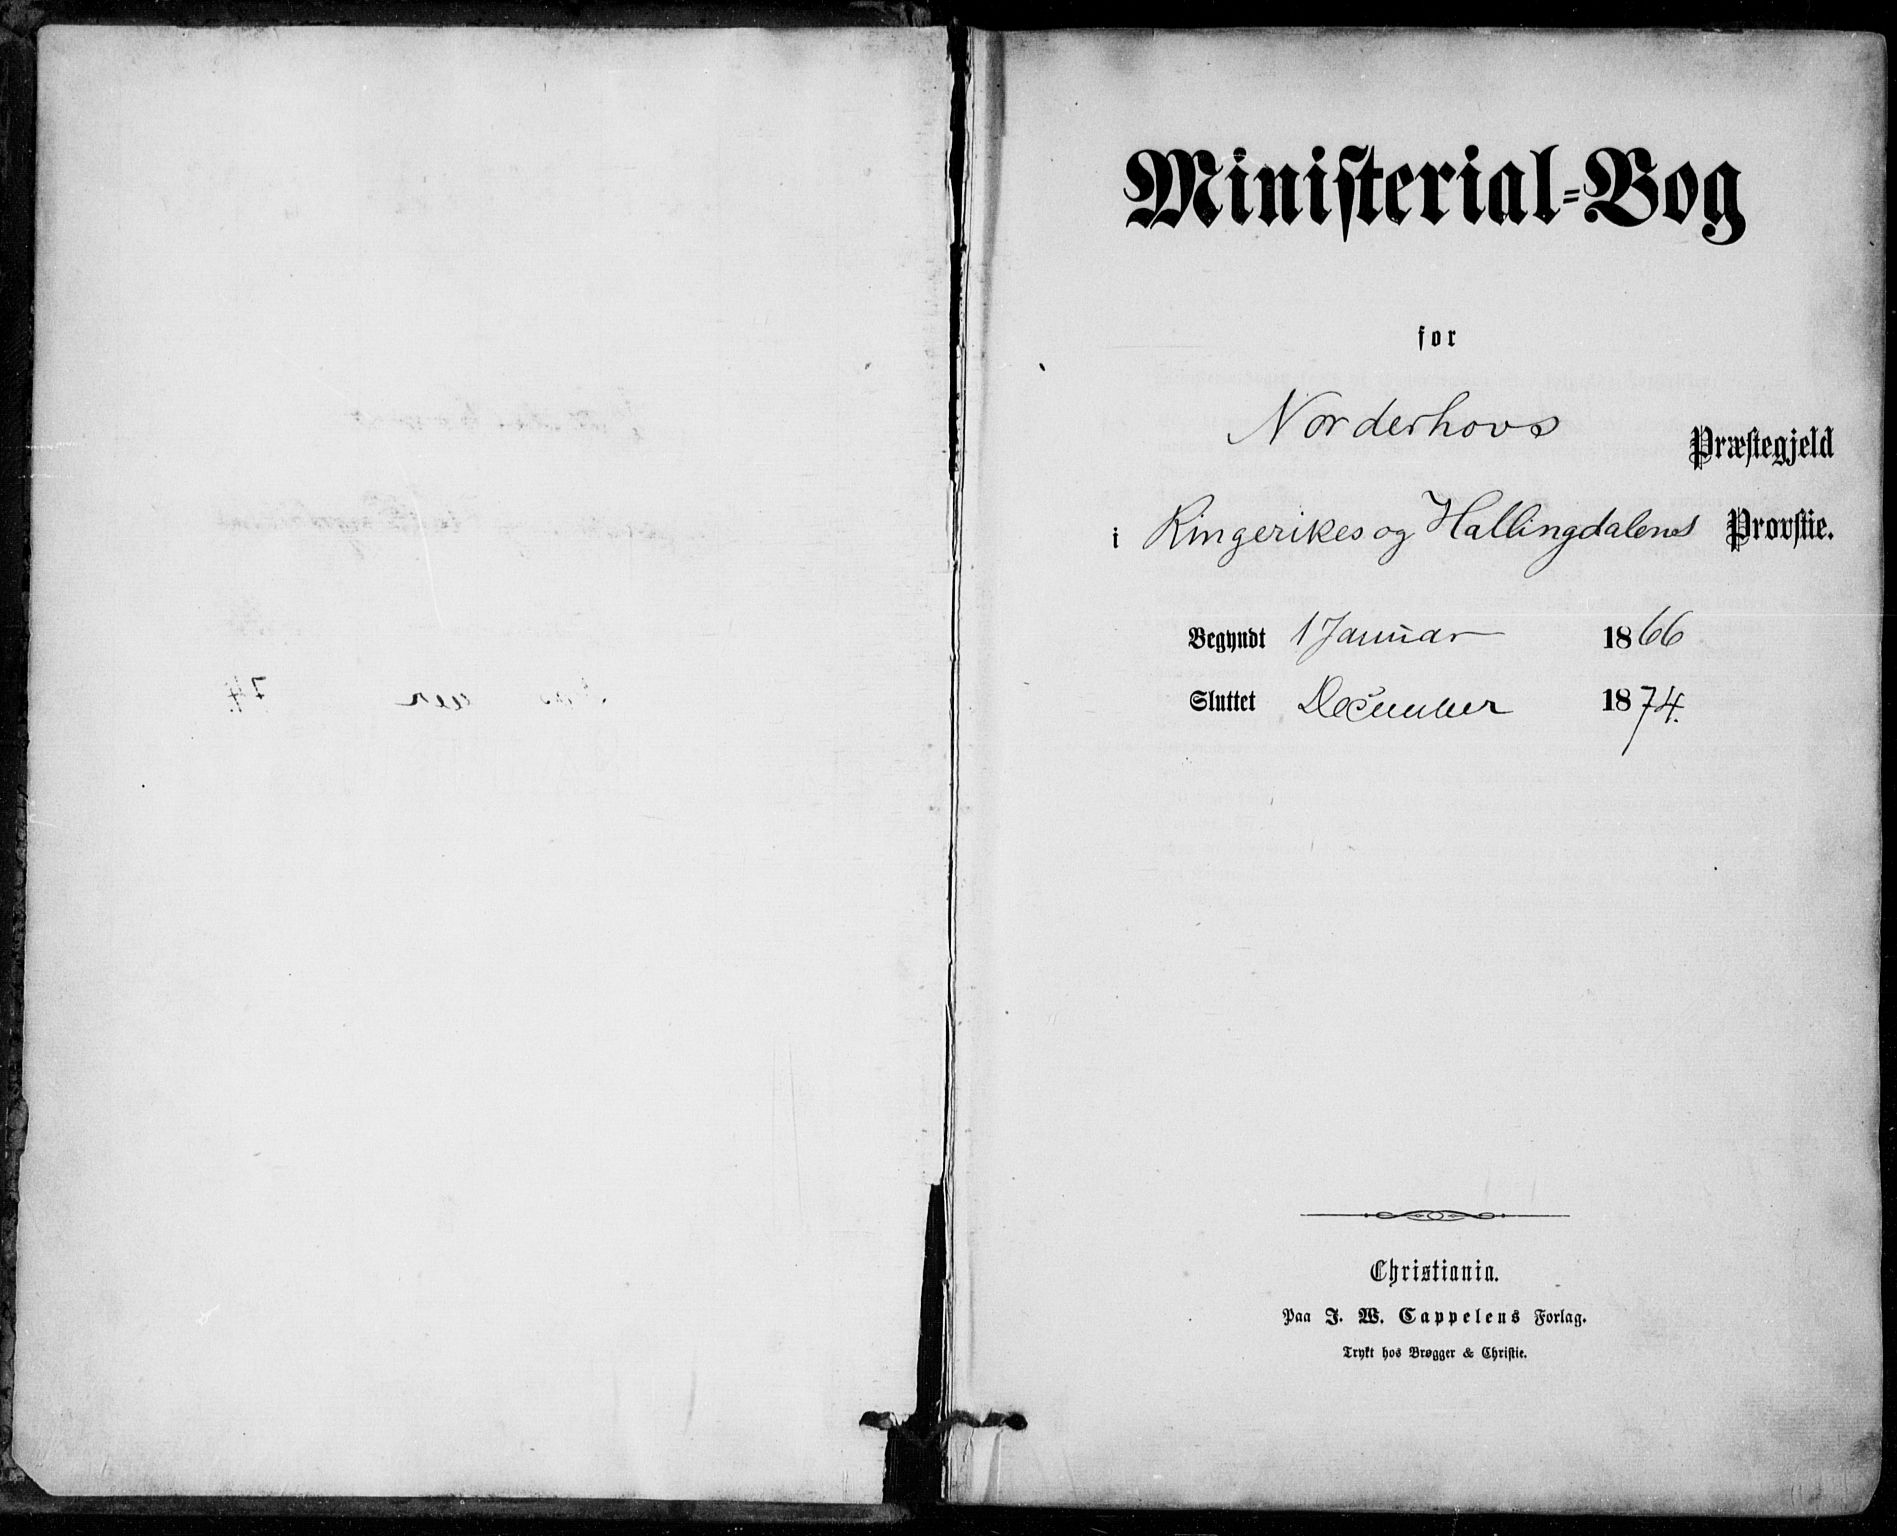 Ministerial-Bog
for
Norderhovs Præstegjeld
i Ringerikes og Hallingdalens Provstie.
Begyndt 1 Januar 1866
Sluttet December 1874.
Christiania.
Paa J. W. Cappelens Forlag.
Trykt hos Brøgger & Christie.